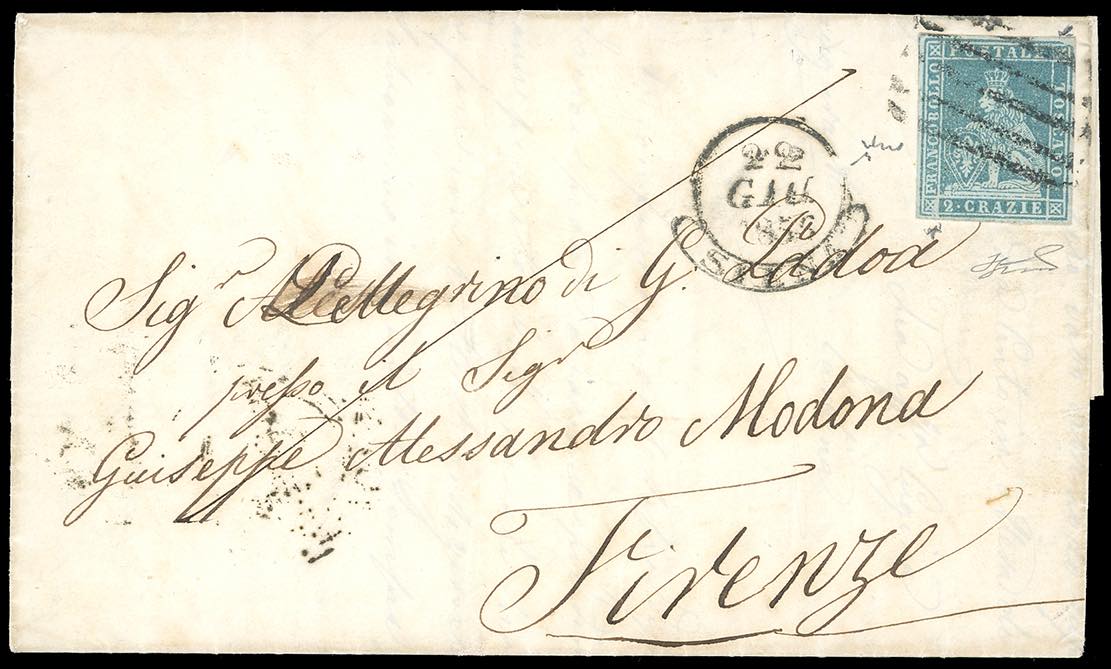 FRANCOBOLLO
POSTALE
TOSCANO
2·CRAZIE
22
GIU
Sigr Pellegrino di G. Padoa
presso il Sigr
Guiseppe Alessandro Modona
Firenze